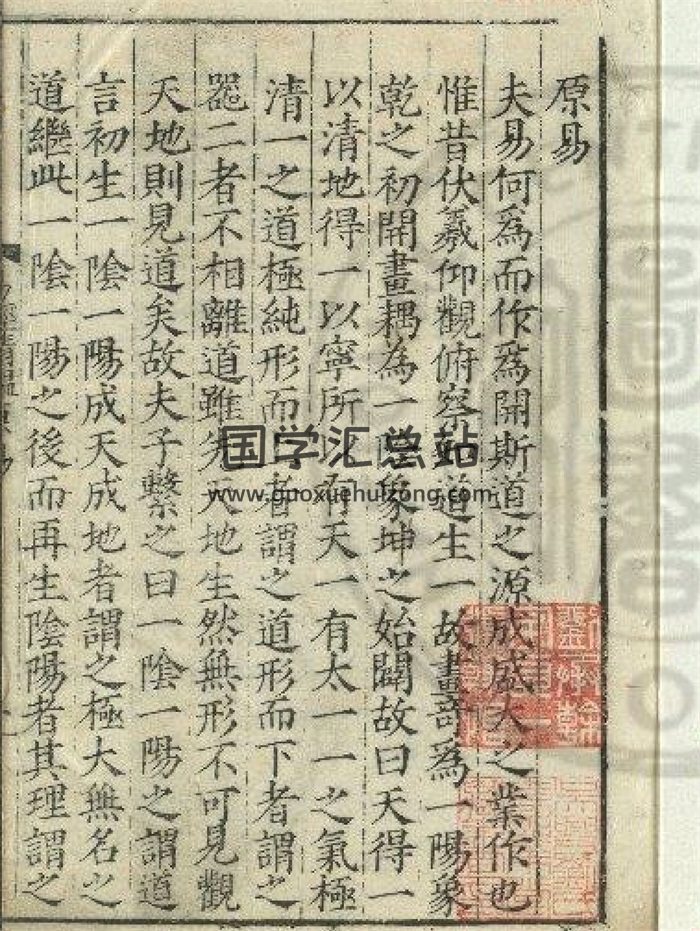 原易
夫易何爲而作爲開斯道之源成盛大之業作也
惟昔伏羲仰觀俯察知道生一故畫奇爲一陽象
乾之初開畫耦為一陰象坤之始闢故曰天得一
以清地得一以寧所以有天一有太一一之氣極
清一之道極純形而上者謂之道形而下者謂之
噐二者不相離道雖先天地生然無形不可見觀
天地則見道矣故夫子繫之曰一陰一陽之謂道
言初生一陰一陽成天成地者謂之極大無名之
道繼此一陰一陽之後而再生陰陽者其理謂之
国学汇总站
www.guoxuehuizong.com